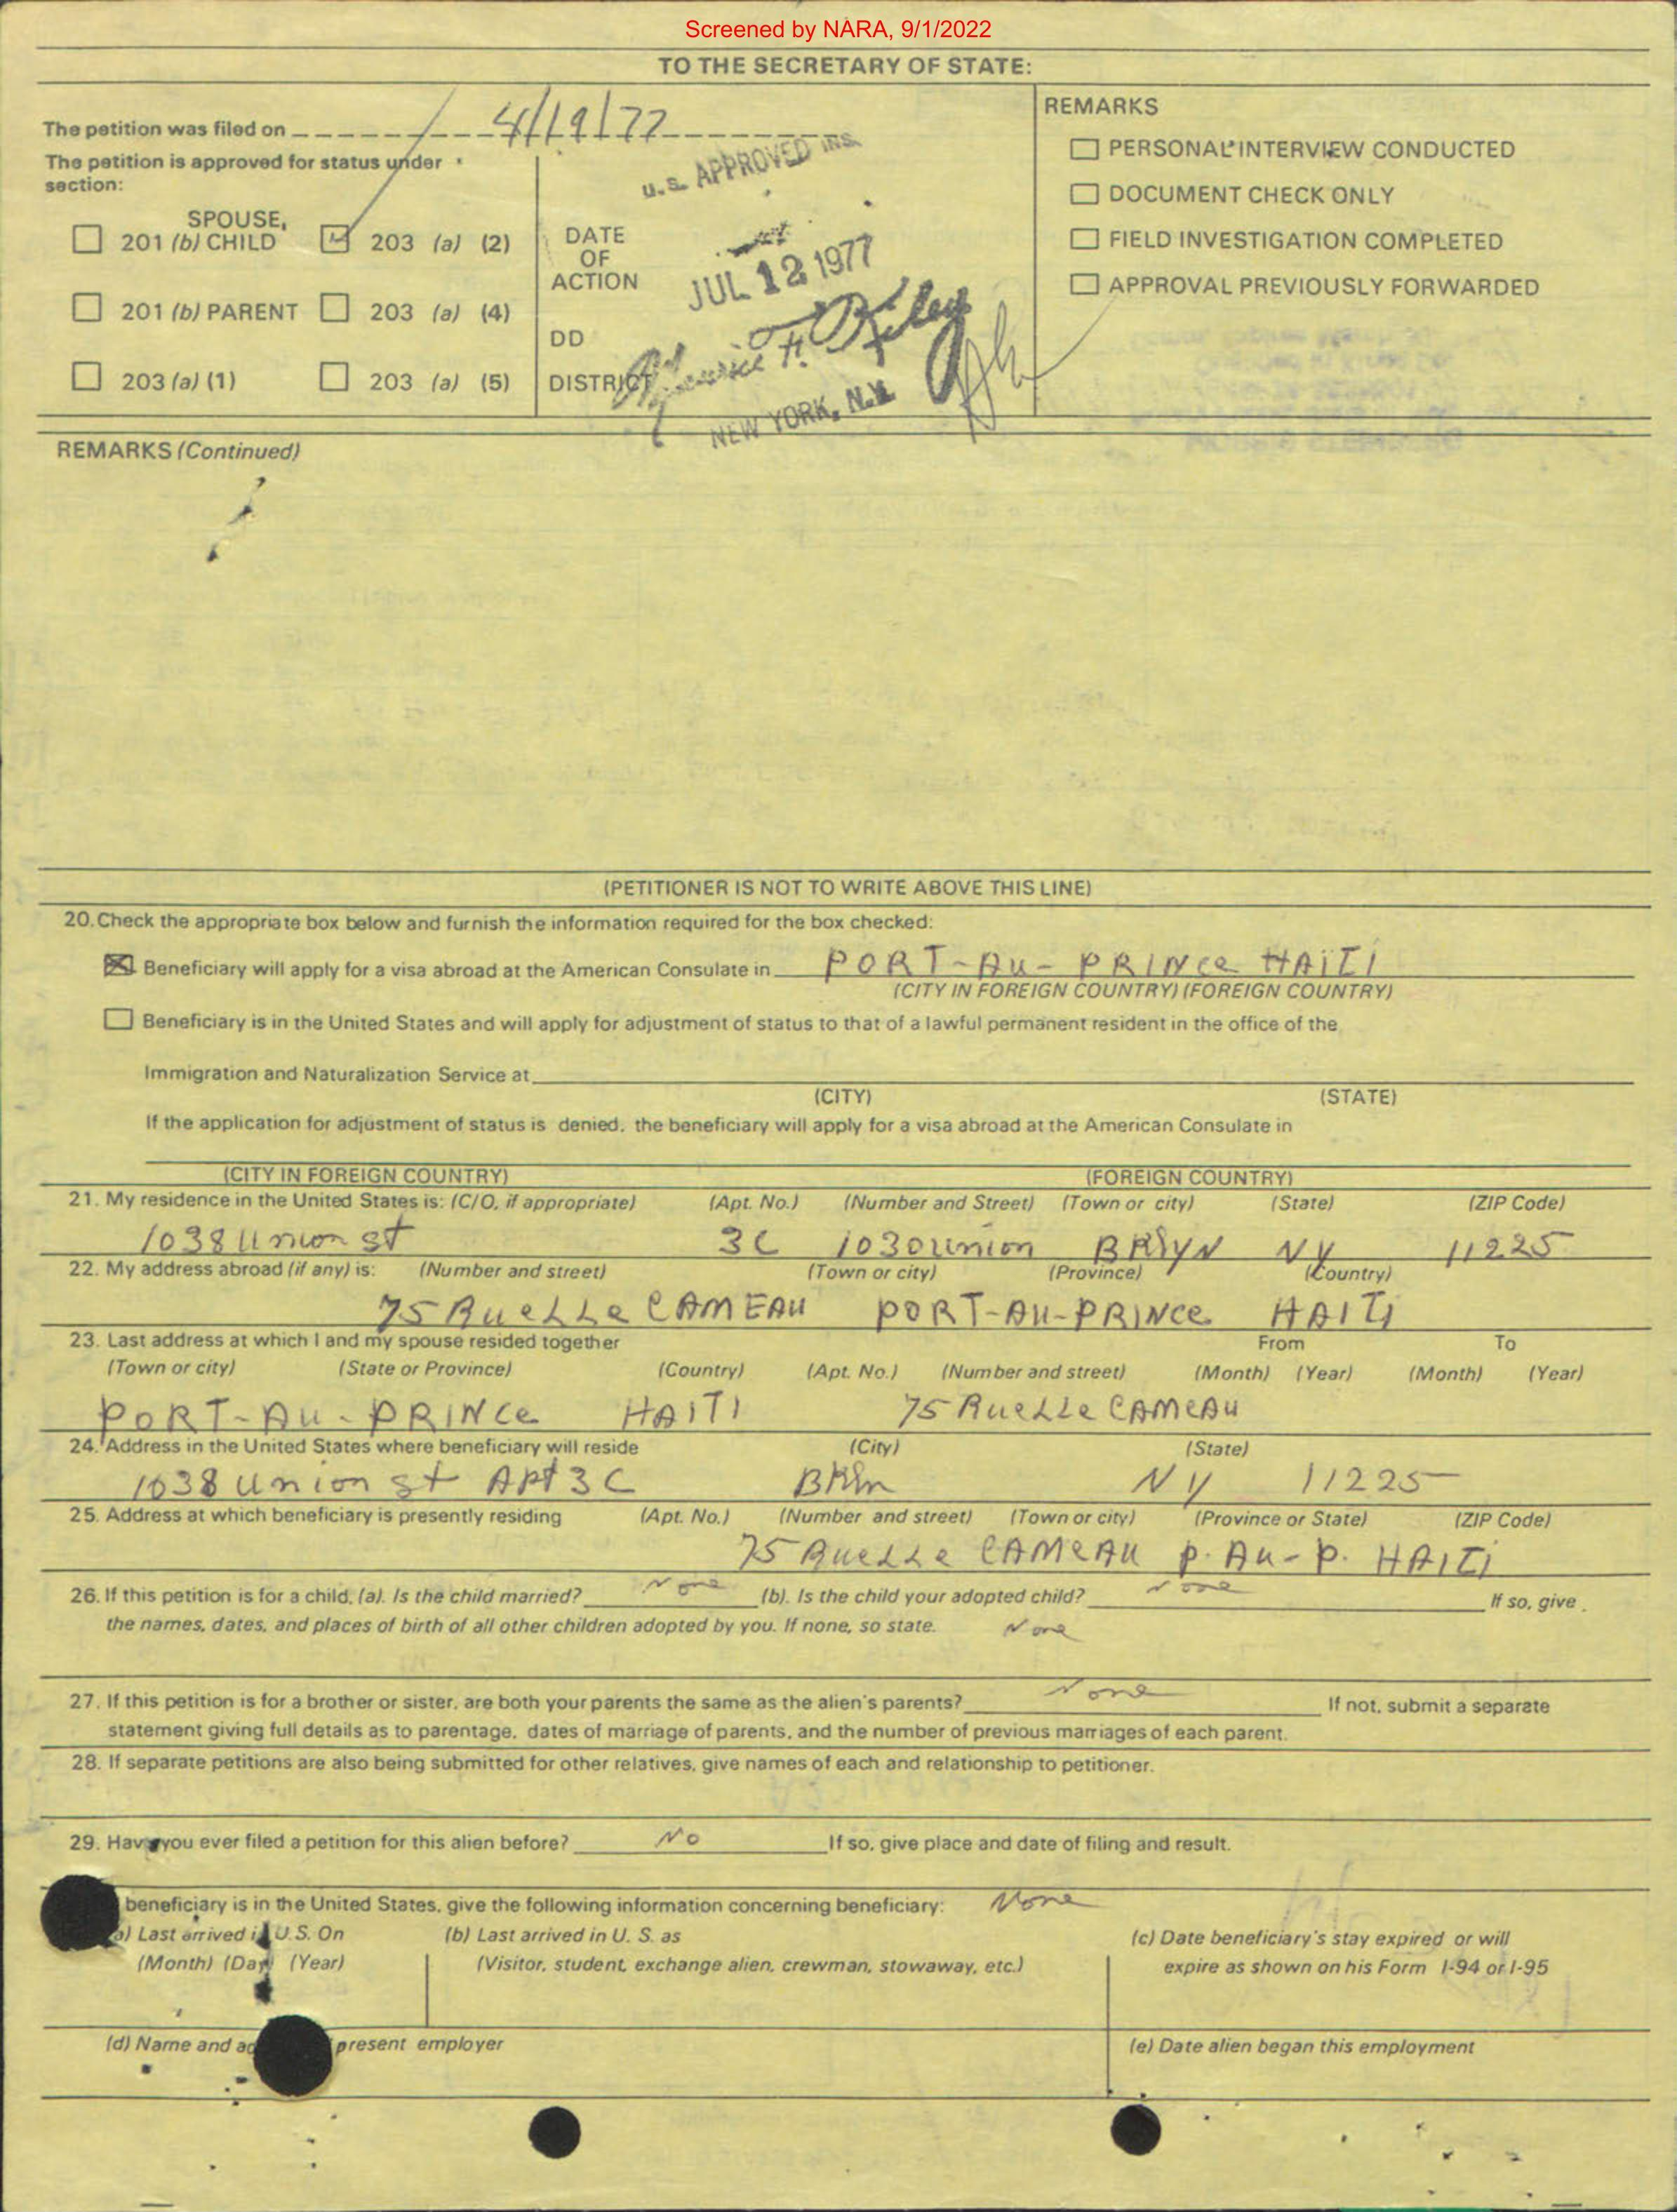 Screened by NARA, 9/1/2022
TO THE SECRETARY OF STATE:
The petition was filed on 4/19/77
The petition is approved for status under
section:
SPOUSE,
201 (b) CHILD
203 (a) (2)
201 (b) PARENT
203 (a) (4)
203 (a) (1)
203 (a) (5)
U.S. APPROVED INS.
DATE
OF
ACTION
JUL 12 1977
DD
DISTRICT
Maurice F. Kiley
NEW YORK, N.Y.
REMARKS
PERSONAL INTERVIEW CONDUCTED
DOCUMENT CHECK ONLY
FIELD INVESTIGATION COMPLETED
APPROVAL PREVIOUSLY FORWARDED
REMARKS (Continued)
(PETITIONER IS NOT TO WRITE ABOVE THIS LINE)
20. Check the appropriate box below and furnish the information required for the box checked:
Beneficiary will apply for a visa abroad at the American Consulate in PORT-AU-PRINCE HAITI
(CITY IN FOREIGN COUNTRY) (FOREIGN COUNTRY)
Beneficiary is in the United States and will apply for adjustment of status to that of a lawful permanent resident in the office of the
Immigration and Naturalization Service at
(CITY) (STATE)
If the application for adjustment of status is denied, the beneficiary will apply for a visa abroad at the American Consulate in
(CITY IN FOREIGN COUNTRY) (FOREIGN COUNTRY)
21. My residence in the United States is: (C/O, if appropriate) (Apt. No.) (Number and Street) (Town or city) (State) (ZIP Code)
1038 Union st 3C 1030 Union BRLYN NY 11225
22. My address abroad (if any) is: (Number and street) (Town or city) (Province) (Country)
75 RueLLe CAMEAU PORT-AU-PRINCE HAITI
23. Last address at which I and my spouse resided together From To
(Town or city) (State or Province) (Country) (Apt. No.) (Number and street) (Month) (Year) (Month) (Year)
PORT-AU-PRINCE HAITI 75 RueLLe CAMEAU
24. Address in the United States where beneficiary will reside (City) (State)
1038 Union st Apt 3C BKLn NY 11225
25. Address at which beneficiary is presently residing (Apt. No.) (Number and street) (Town or city) (Province or State) (ZIP Code)
75 RueLLe CAMEAU P. Au-P. HAITI
26. If this petition is for a child, (a). Is the child married? None (b). Is the child your adopted child? None If so, give
the names, dates, and places of birth of all other children adopted by you. If none, so state. None
27. If this petition is for a brother or sister, are both your parents the same as the alien's parents? None If not, submit a separate
statement giving full details as to parentage, dates of marriage of parents, and the number of previous marriages of each parent.
28. If separate petitions are also being submitted for other relatives, give names of each and relationship to petitioner.
29. Have you ever filed a petition for this alien before? No If so, give place and date of filing and result.
beneficiary is in the United States, give the following information concerning beneficiary: None
a) Last arrived in U.S. On (b) Last arrived in U. S. as (c) Date beneficiary's stay expired or will
(Month) (Day) (Year) (Visitor, student, exchange alien, crewman, stowaway, etc.) expire as shown on his Form I-94 or I-95
(d) Name and present employer (e) Date alien began this employment